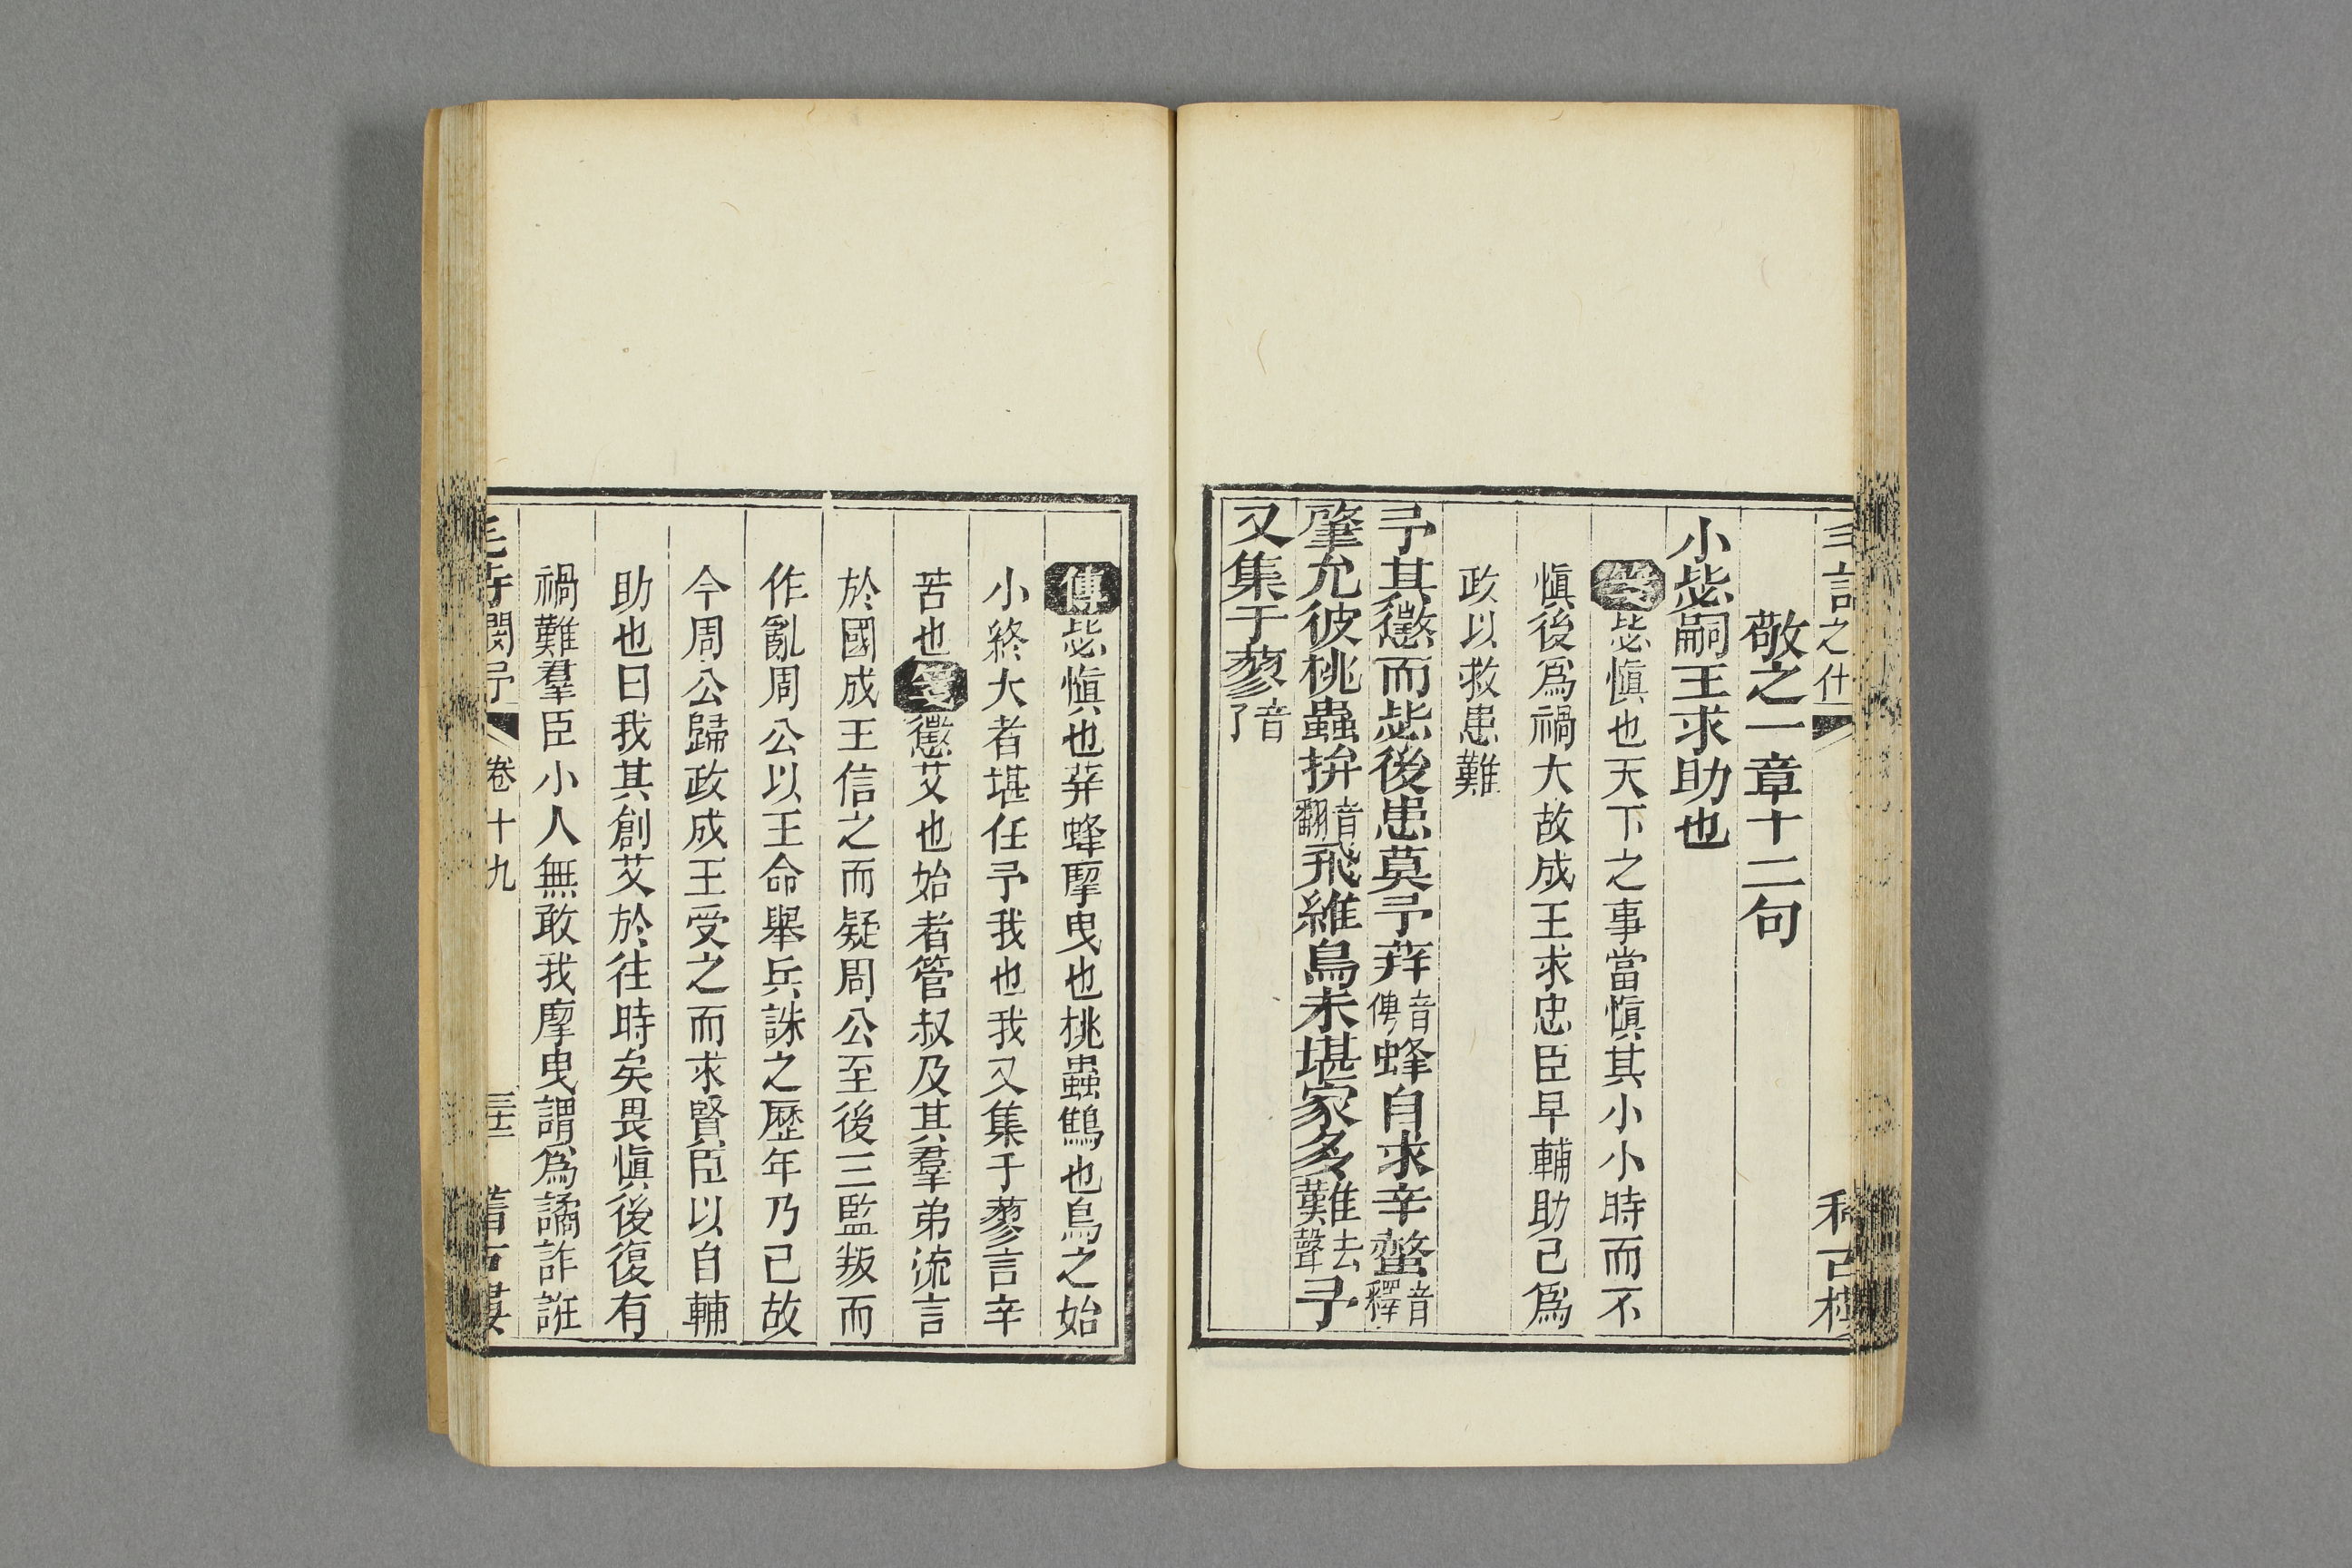 之什
敬之一章十二句
小毖嗣王求助也
箋毖愼也天下之事當愼其小小時而不
愼後爲禍大故成王求忠臣早輔助己爲
政以救患難
予其懲而毖後患莫予荓音俜蜂自求辛螫音釋
肇允彼桃蟲拚音翻飛維鳥未堪家多難去聲予
又集于蓼音了
傳毖愼也荓蜂摩曳也桃蟲鷦也鳥之始
小終大者堪任予我也我又集于蓼言辛
苦也箋懲艾也始者管叔及其羣弟流言
於國成王信之而疑周公至後三監叛而
作亂周公以王命舉兵誅之歷年乃已故
今周公歸政成王受之而求賢臣以自輔
助也曰我其創艾於往時矣畏愼後復有
禍難羣臣小人無敢我摩曳謂爲譎詐誑
卷十九